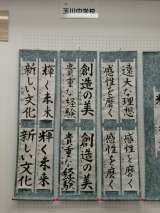 玉川中学校
遠大な理想
感性を磨く
創造の美
貴重な経験
輝く未来
新しい文化
感性を磨く
感性を磨く
創造の美
貴重な経験
輝く未来
新しい文化